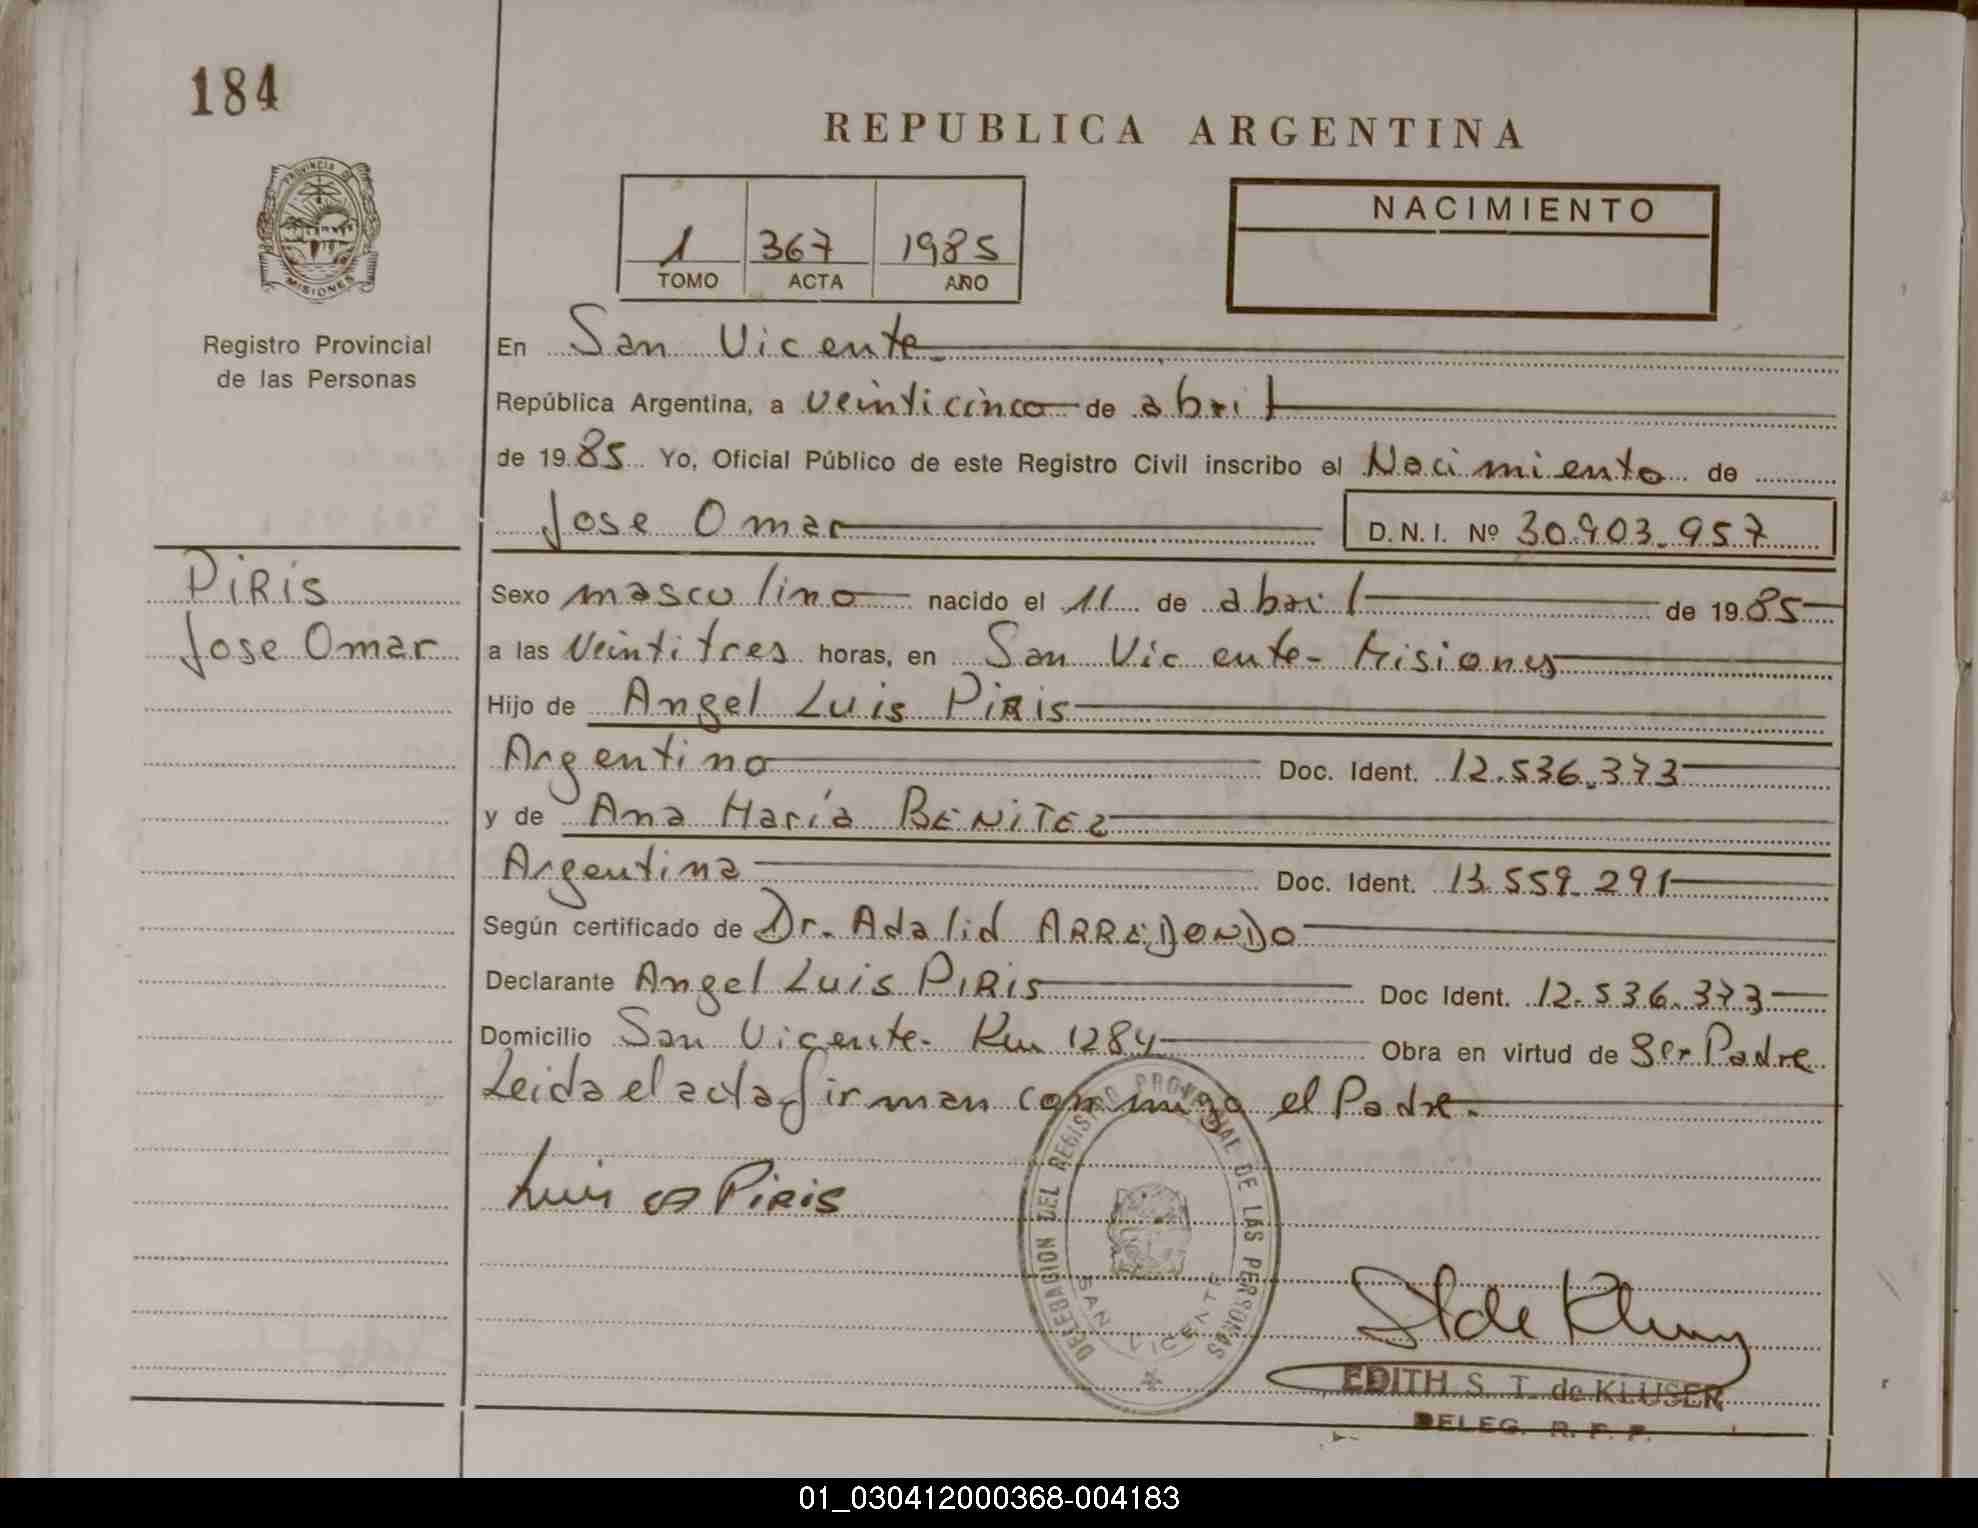 184
REPUBLICA ARGENTINA
PROVINCIA DE
MISIONES
1 367 1985
TOMO ACTA AÑO
NACIMIENTO
Registro Provincial
de las Personas
En San Vicente
República Argentina, a veinticinco de abril
de 1985 Yo, Oficial Público de este Registro Civil inscribo el Nacimiento de
Jose Omar D.N.I. Nº 30.903.957
PIRIS
Jose Omar
Sexo masculino nacido el 11 de abril de 1985
a las Veintitres horas, en San Vicente- Misiones
Hijo de Angel Luis PIRIS
Argentino Doc. Ident. 12.536.373
y de Ana María BENITEZ
Argentina Doc. Ident. 13.559.291
Según certificado de Dr. Adalid ARREDONDO
Declarante Angel Luis PIRIS Doc Ident. 12.536.373
Domicilio San Vicente- Km 1284 Obra en virtud de Ser Padre
Leida el acta firman conmigo el Padre.
Luis PIRIS
DELEGACION DEL REGISTRO PROVINCIAL DE LAS PERSONAS
SAN VICENTE
St de Kluser
EDITH S. T. de KLUSER
DELEG. R. P. P.
01_030412000368-004183